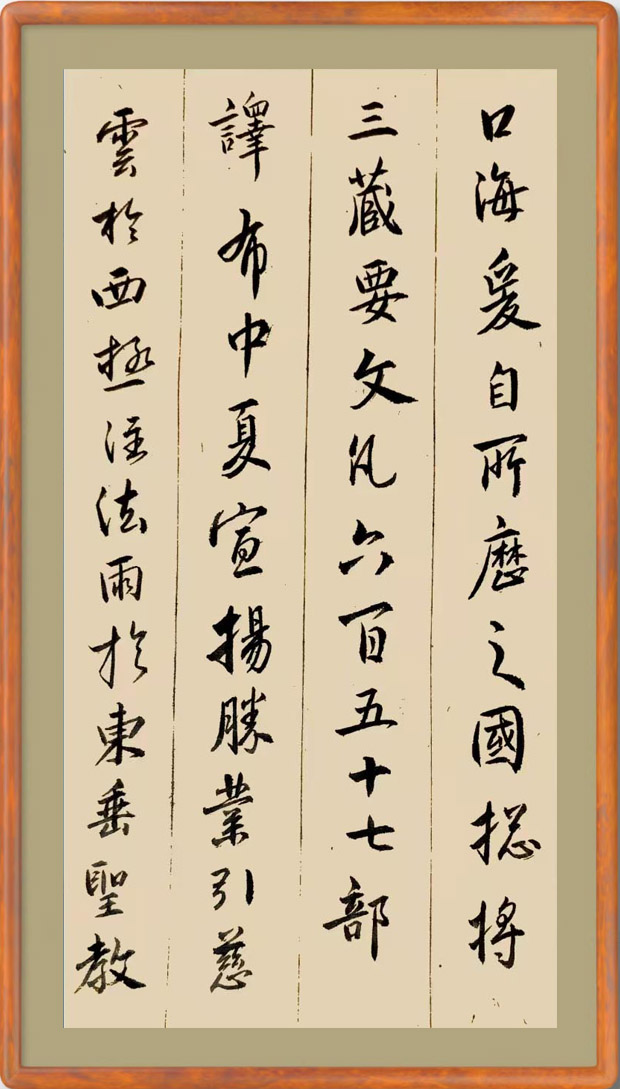 口海爰自所歷之國揔將
三藏要文凡六百五十七部
譯布中夏宣揚勝業引慈
雲於西極注法雨於東垂聖教